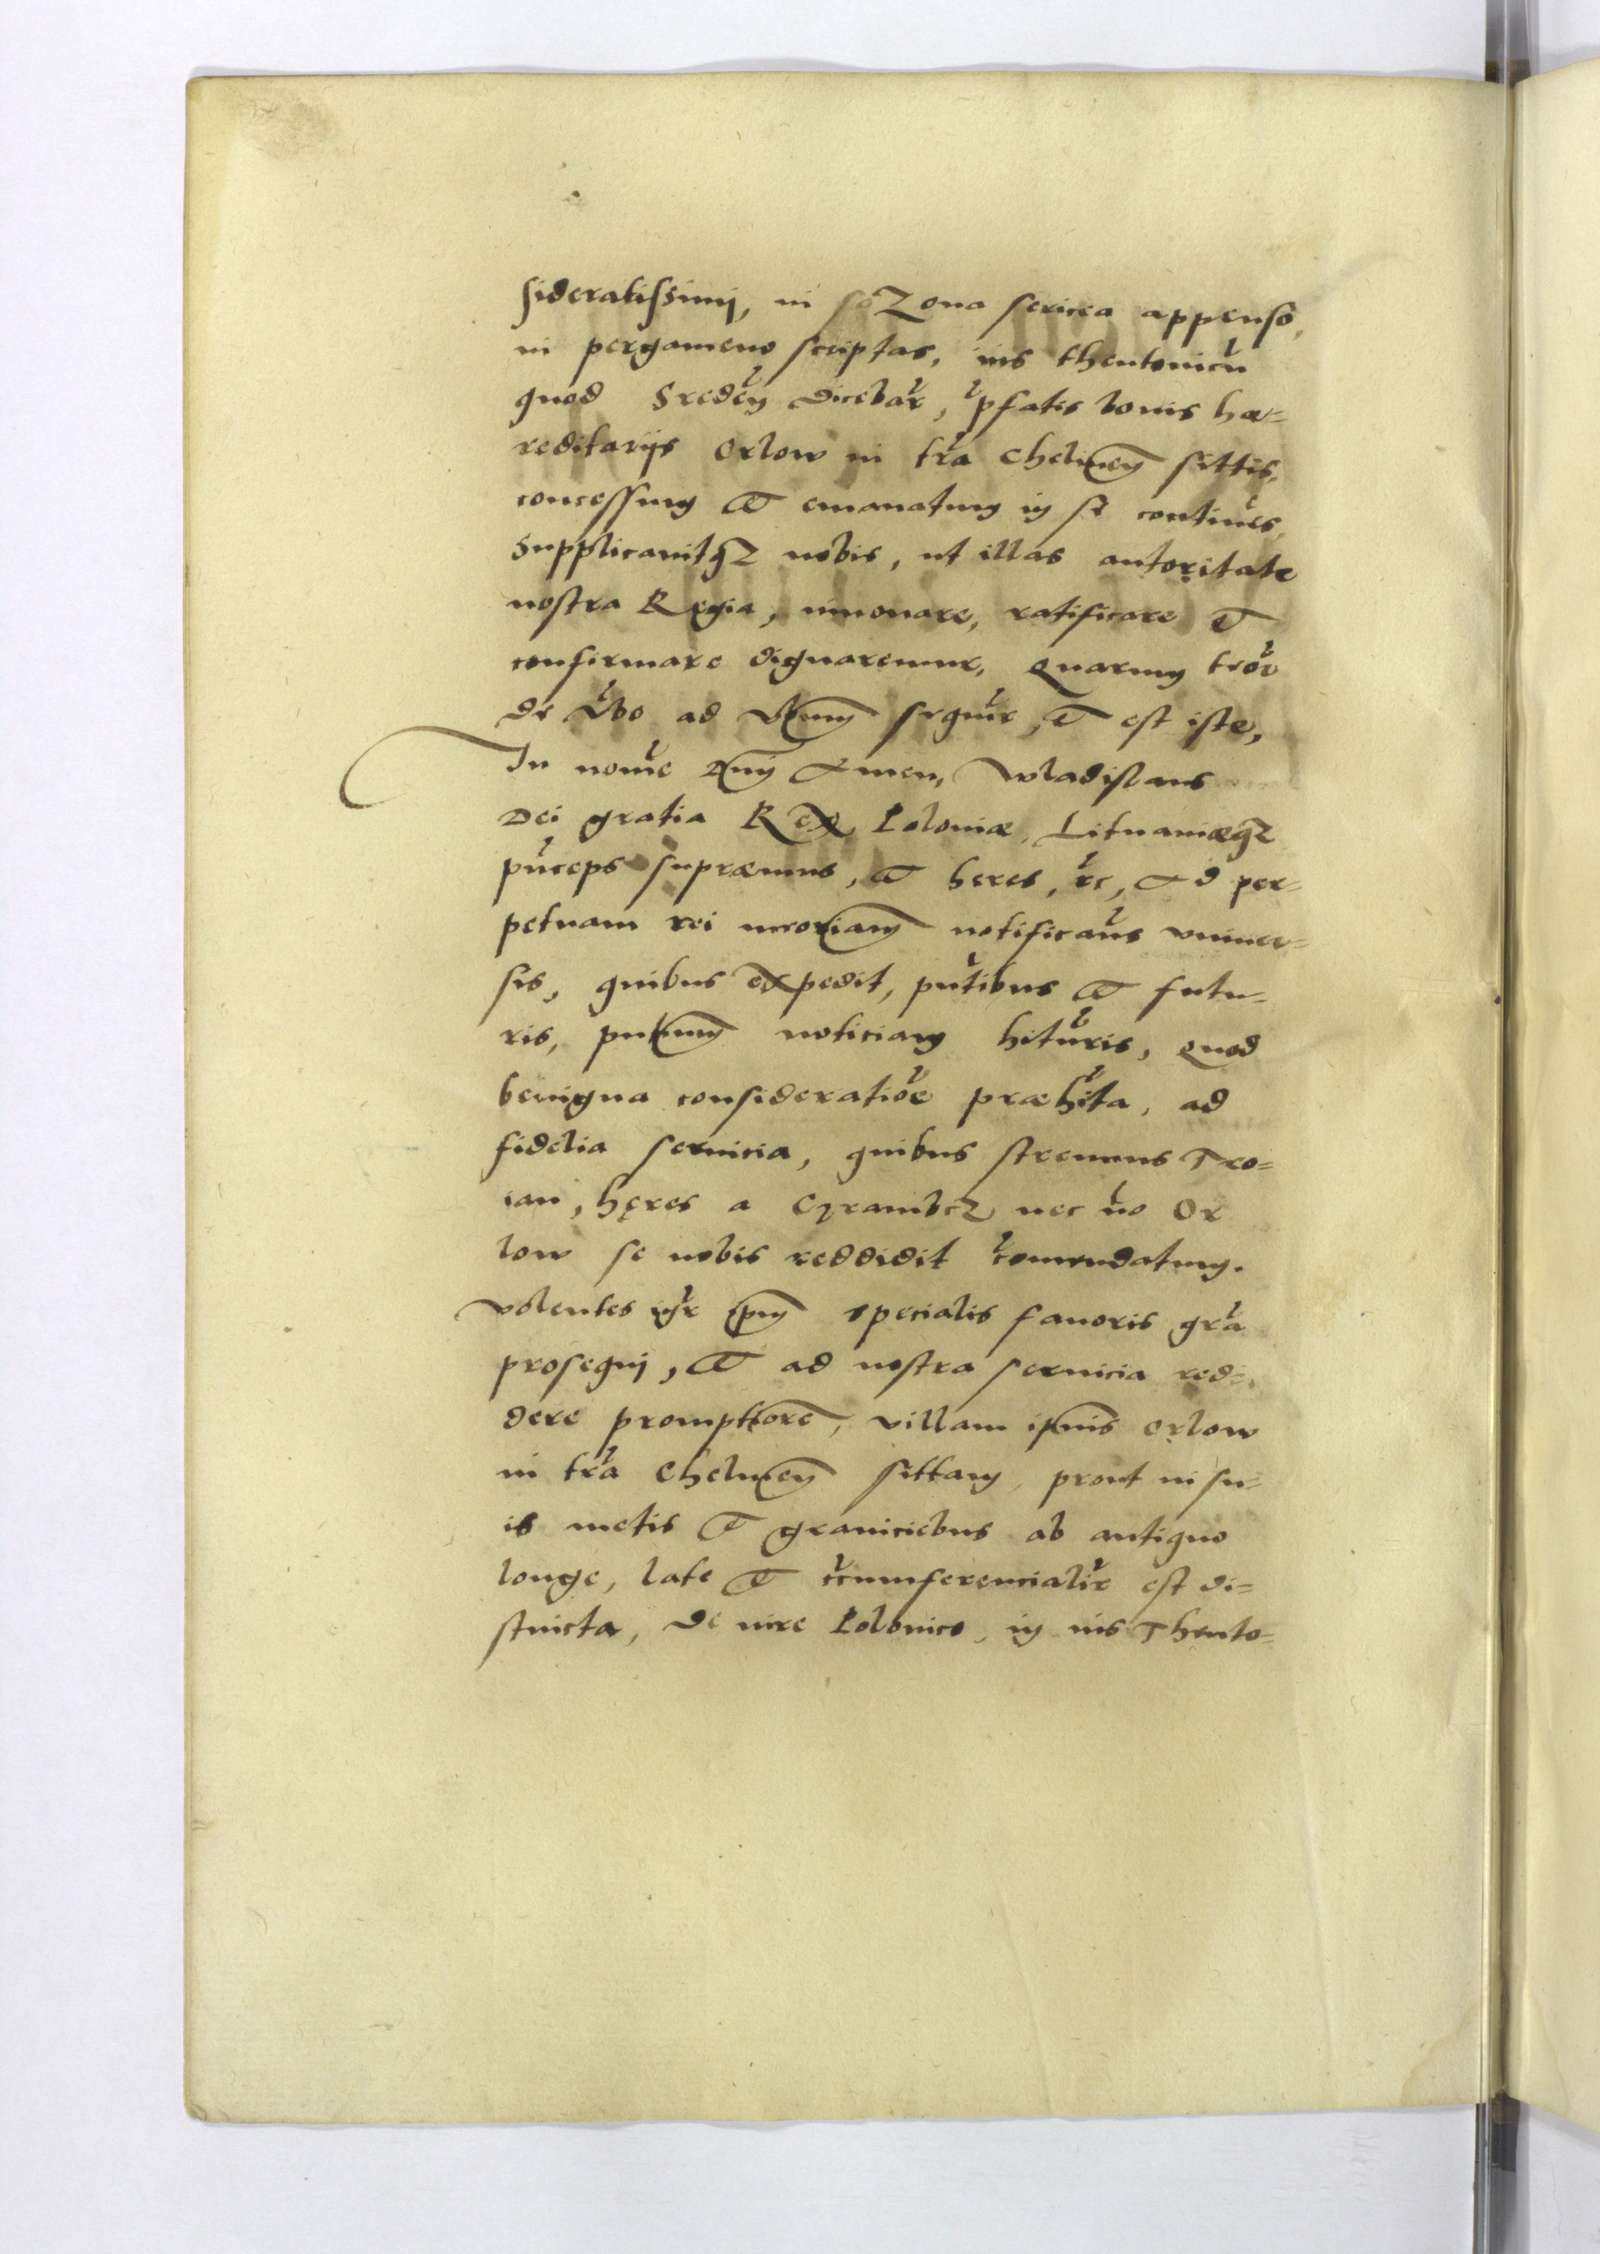 sideratissimi, in Zona sericea appenso,
in pergameno scriptas, ius theutonicū
quod Sredeñ dicebat̃, p̃fatis bonis hæ=
reditariis Orlow in tr̃a Chelmeñ sittis,
concessum et emanatum in se contineñs
Supplicauitqz nobis, ut illas autoritate
nostra Regia, innouare, ratificare et
confirmare dignaremur, Quarum teñor
de ṽbo ad ṽbum sequit̃r, et est iste,
In noĩe Dñi Amen, Wladislaus
Dei gratia Rex Poloniæ, Lituaniæqz
pñceps supræmus, et heres, etc, Ad per=
petuam rei meoriam notificam̃us vniuer=
sis, quibus expedit, pñtibus et futu=
ris, pñtium noticiam hitũris, Quod
benigna consideratioñe præhĩta, ad
fidelia seruicia, quibus strenuus Tro=
ian, hęres a nec ñõ Or
low se nobis reddidit com̃endatum.
Volentes igr̃ ip̃m specialis fauoris gr̃a
prosequi, et ad nostra seruicia red=
dere promptiorẽ, villam ipsius Orlow
in tr̃a Chelmeñ sittam, prout in su=
is metis et graniciebus ab antiquo
longe, late et circumferencialit̃r est di=
stincta, de iure Polonico, in ius Theuto=